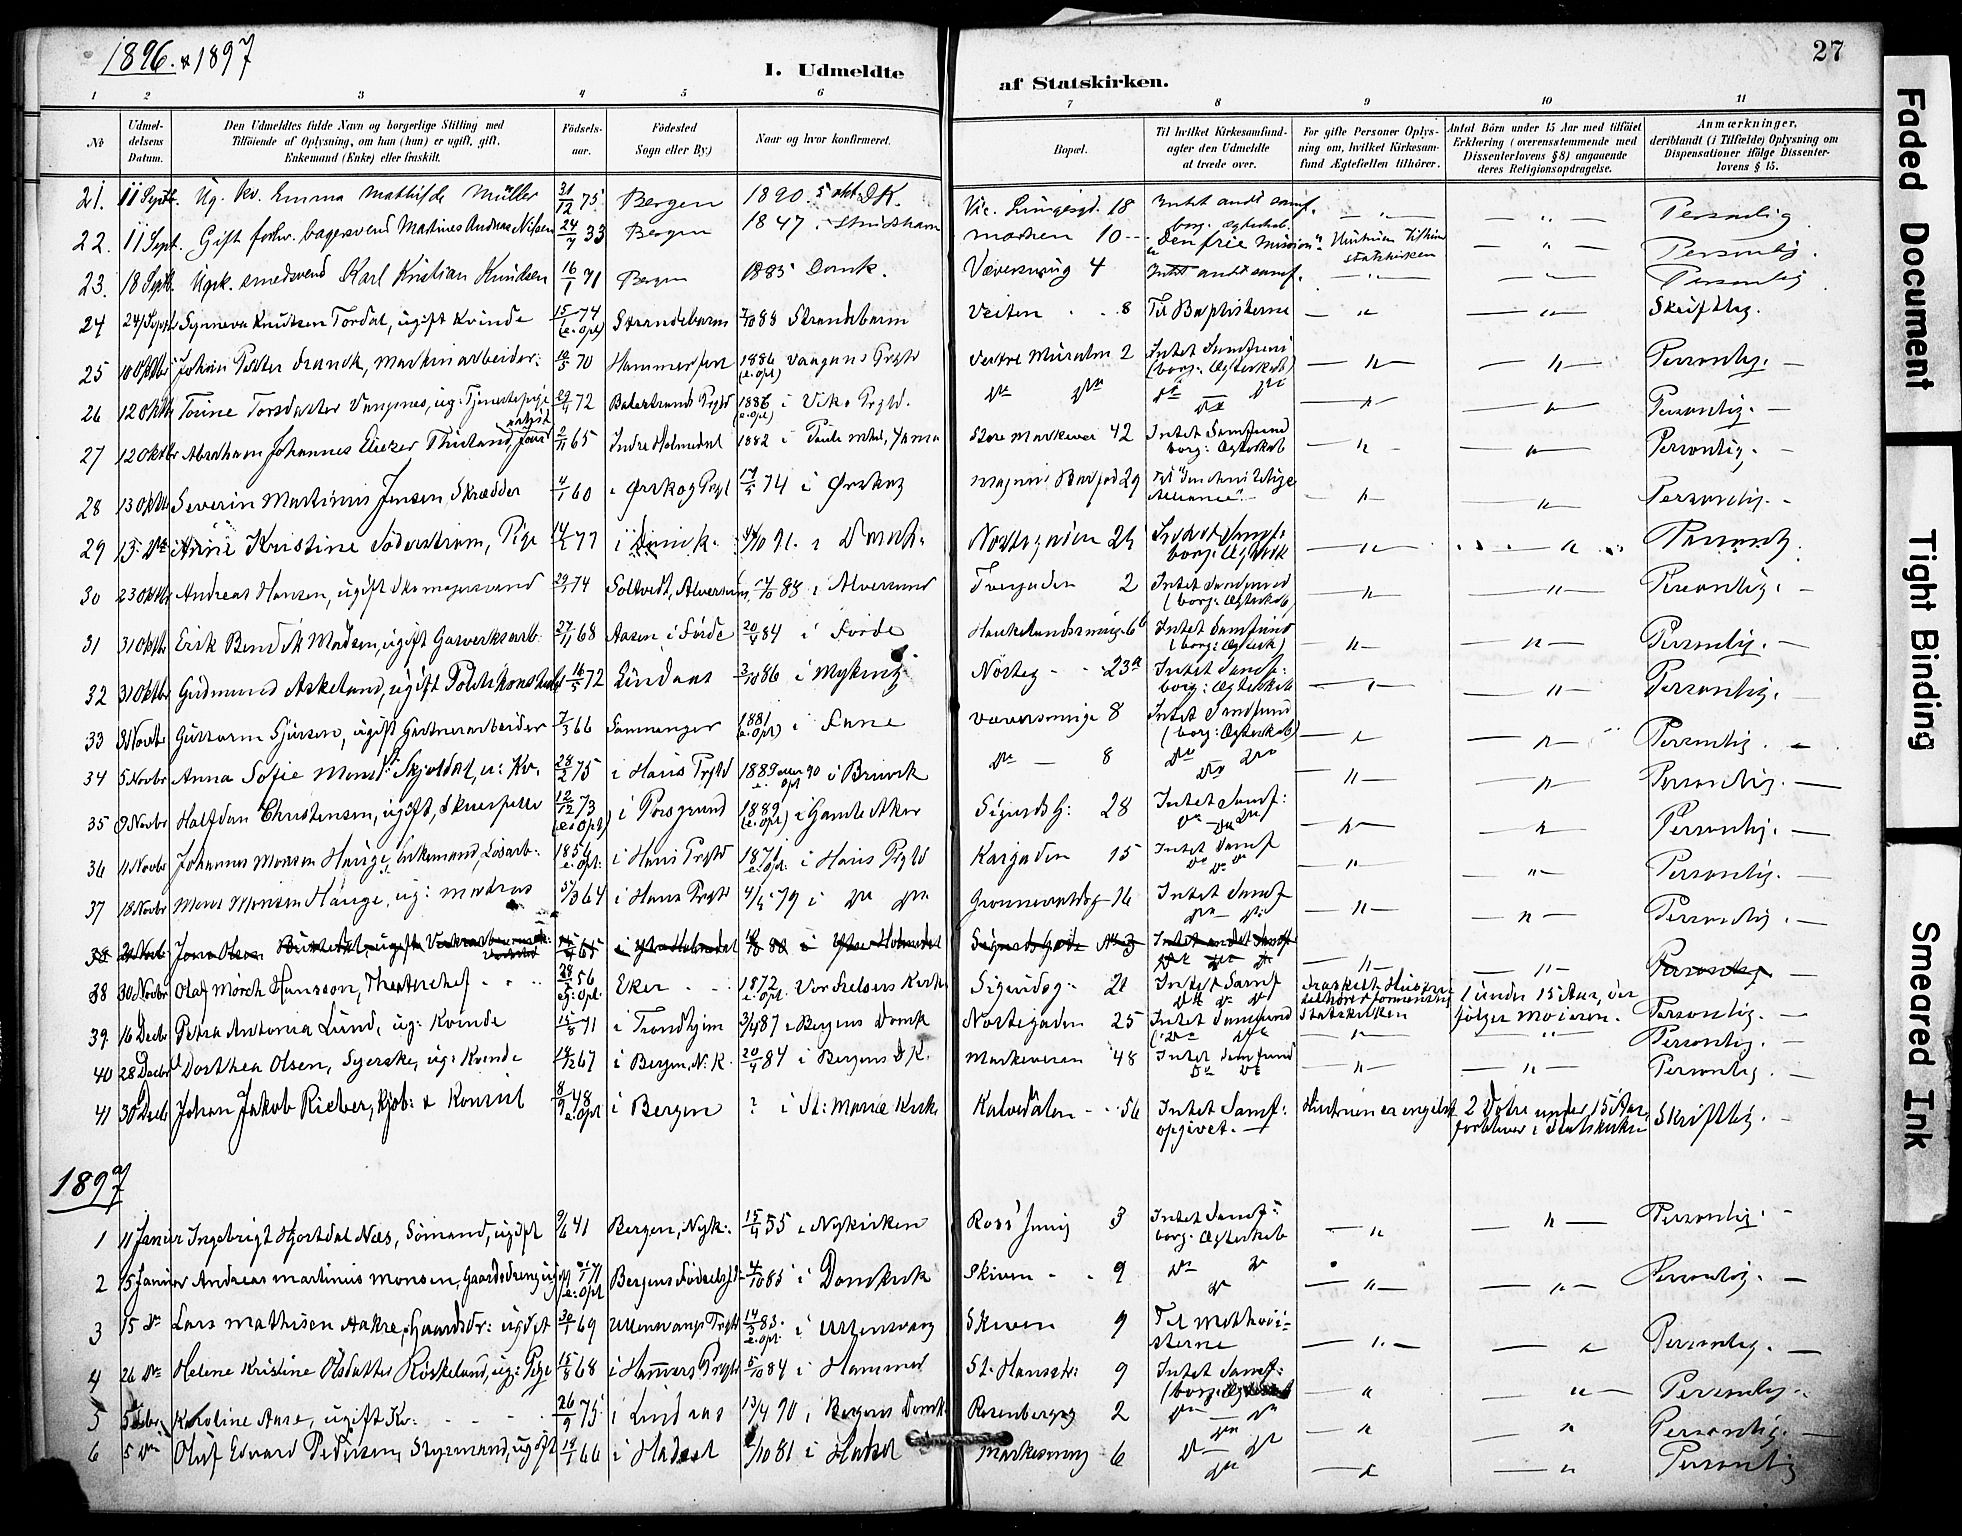 1896. & 1897
I. Udmeldte af Statskirken.
27
1 2 3 4 5 6 7 8 9 10 11
№
Udmeldelsens Datum.
Den Udmeldtes fulde Navn og borgerlige Stilling med Tilföiende af Oplysning, om han (hun) er ugift, gift, Enkemand (Enke) eller fraskilt.
Födselsaar.
Födested Sogn eller By.)
Naar og hvor konfirmeret.
Bopæl.
Til hvilket Kirkesamfund agter den Udmeldte at træde over.
For gifte Personer Oplysning om, hvilket Kirkesamfund Ægtefællen tilhörer.
Antal Börn under 15 Aar med tilföiet Erklæring (overensstemmende med Dissenterlovens § 8) angaaende deres Religionsopdragelse.
Anmærkninger, deriblandt (i Tilfælde) Oplysning om Dispensationer ifölge Dissenterlovens § 15.
21. 11 Septb. Ug. kv. Emma Mathilde Müller 31/12 75. Bergen 1890. 5 okt. D.K. 18 Intet andt samf. borg. ægteskab. — " — — " — Personlig
22. 11 Sept. Gift forhv. bagersvend Martines Andreas Nilsen 24/7 33 Bergen 1847 Marken 10 "Den frie Mission". Hustruen tilhörer statskirken — " — Personlig.
23. 18 Septb. Ugk. smedsvend Karl Kristian Knudsen 16/1 71 Bergen 1885 Domk. Væversmug 4 Intet andt samf. — " — — " — Personlig
24 24/Septb Synneva Knutsen Tordal, ugift Kvinde 15/1 74 (e. opl) Strandebarm 7/10 88 Strandebarm Veiten 8 Til Baptisterne — " — — " — Skriftlig.
25 10 Oktbr Johan Petter Franck, Maskinarbeider: 70 Hammerfest 1886 (e. opl) Vaagans Prgld Vestre Muralm 2 Intet Samfund (borg: Ægteskab) — " — — " — Personlig. —
26 12 Oktb Torine Torsdatter Vangsnes, ug: Tjenestepige 29/4 72 Balestrands Prgld 1886 (e. opl) i Viks Prgld. do do do do do — " — — " — Personlig. —
27 12 Oktbr Abraham Johannes Eliezer 65 Indre Holmedal 1882 i Store Markevei 42 Intet Samfund borg: Ægteskab — " — — " — Personlig. —
28 13 Oktb Severin Martinus Jensen Skrædder 4/1 60 i Ørskog Prgl 17/5 74 i Ørskog Magnus Barfod 29 Til "Den kristelige Alliance". — " — — " — Personlig. —
29 15. do Anne Kristine Söderström, Pige 14/2 77 i Domk. 4/10 91. i Domk. Nöstegaden 24 Intet Samf: borg: Ægtesk — " — — " — Personlig.
30 23 Oktb Andreas Hansen, ugift Skomagersvend 74 Soltvedt, Alversund 88 i Alversund Tvergaden 2 Intet Samfund (borg: Ægteskab) — " — — " — Personlig. —
31 31 Oktb Erik Bendik Madsen, ugift Gasverksarb. 27/11 68 Aasen i Förde 20/4 84 i Förde Haukelandsmug 6b Intet Samfund (borg: Ægtesk) — " — — " — Personlig. —
32 31 Oktbr Gudmund Askeland, ugift Politikonstabel 16/5 72 Lindaas 3/10 86 i Myking Nösteg 23a Intet Samf: borg: Ægteskab — " — — " — Personlig. —
33 Novbr Guttorm Sjursen, ugift Gartnerarbeider 7/3 66 Samnanger 1881 (e. opl) i Fane Væversmug 8 Intet Samfund (borg: Ægteskab) — " — — " — Personlig. —
34 5 Novbr Anna Sofie Monsd. Skjoldal, u: Kv. 28/2 75 i Haus Prgld 1889 eller 90 e. opl i Bruvik do — 8 do do do — " — — " — Personlig. —
35 9 Novbr Halfdan Christensen, ugift, Skuespiller 12/12 73 (e: opl) i Porsgrund 1889 (e: opl) i Gamle Aker Sigurds G: 28 Intet Samf: do — do — " — — " — Personlig. —
36 11 Novbr Johannes Monsen Hauge, Enkemand, Lösarb. 1856 e: opl: i Haus Prgld 1871 e: opl: i Haus Prgld Kaigaden 15 Intet Samf do do do — " — — " — Personlig.
37 18 Novbr Mons Monsen Hauge, ug: Matros 64 i Haus Prgld 79 i do do 16 Intet Samf do — do — " — — " — Personlig. —
38 21 Novb. Jona Olsen 65 i Ytre Holmedal 80 i Ytre Holmedal Sigurds Gade No 3 Intet andet Samf do do do — " — — " — Personlig —
38 30 Novbr Olaf Mörch Hansson, Theaterchef 28/5 56 e: opl Eker 1872 e. opl. Vor Frelsers Kirke Sigurdsg. 21 Intet Samf do do do Fraskilt. Statskirken 1 under 15 Aar, der fölger Moderen. Personlig. —
39. 16 Decb Petra Antonia Lund, ug: Kvinde 15/5 71 i Trondhjem 3/4 87 i Bergens Domk Nöstegaden 25 Intet Samfund (do do — " — — " — Personlig. —
40 28 Decbr Dorthea Olsen, Syerske, ug: Kvinde 14/12 67 i Bergen, N.K. 20/4 84 i Bergens D.K. Markeveien 48 Intet Samfund do do — " — — " — Personlig —
41 30 Decb Johan Jakob Rieber, Kjöb: & Konsul 8/9 48 e: opl i Bergen ? i St: Mariæ Kirke Kalvedalen 56 Intet Samf: opgivet. — Hustruen er engelsk 2 Dötre under 15 Aar, forbliver i Statskirken Skriftlig. —
1897
1 11 Januar Ingebrigt Hjortdal Næs, Sömand, ugift 9/6 41 Bergen, Nyk. 15/4 55 i Nykirken 3 Intet Samf: borg: Ægteskab — " — — " — Personlig. —
2 15 Januar Andreas Martinus Monsen, Gaardsdreng 71 e: opl Bergens Födselsst. 4/10 85 i Domkirk Skiven 9 do do do — " — — " — Personlig. —
3 15 do Lars Mathisen Aakre, Gaardsdr: ugift 30/1 69 Ullensvangs Prgld 14/3 83. e: opl. i Ullensvang Skiven 9 Til Methodisterne — " — — " — Personlig. —
4 26 do Helene Kristine Olsdatter Röskeland, ug: Pige 15/8 68 i Hammers Prgld 5/10 84 i Hammer St. Hansstr. 9 Intet Samf: (borg: Ægteskab — " — — " — Personlig.
5 5 Febr. Karoline Aase, ugift Kv. 26/9 75 i Lindaas 13/4 90 i Bergens Domk Rosenbergsg 2 do — do do — " — — " — Personlig. —
6 5 do Oluf Edvard Pedersen, Styrmand, ugift 66 i 81 i Markesmug 6 do — do do — " — — " — Personlig
Faded Document
Tight Binding
Smeared Ink